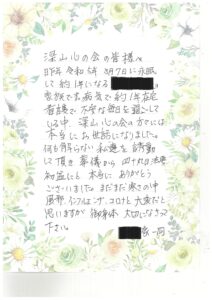 深山心の会の皆様へ
昨年 令和5年3月7日に永眠
して約1年になる
突然で於病気で約1年在宅
看護で不安な毎日を過ごして
いる中 深山心の会の方々には
本当にお世話になりました。
何も解らない私達を誘導
して頂き 葬儀から四十九日法要
初盆にと 本当に ありがとう
ございました。まだまだ寒さの中
風邪、インフルエンザ、コロナと大変だと
思いますが 御身体 大切になさって
下さい。
一同